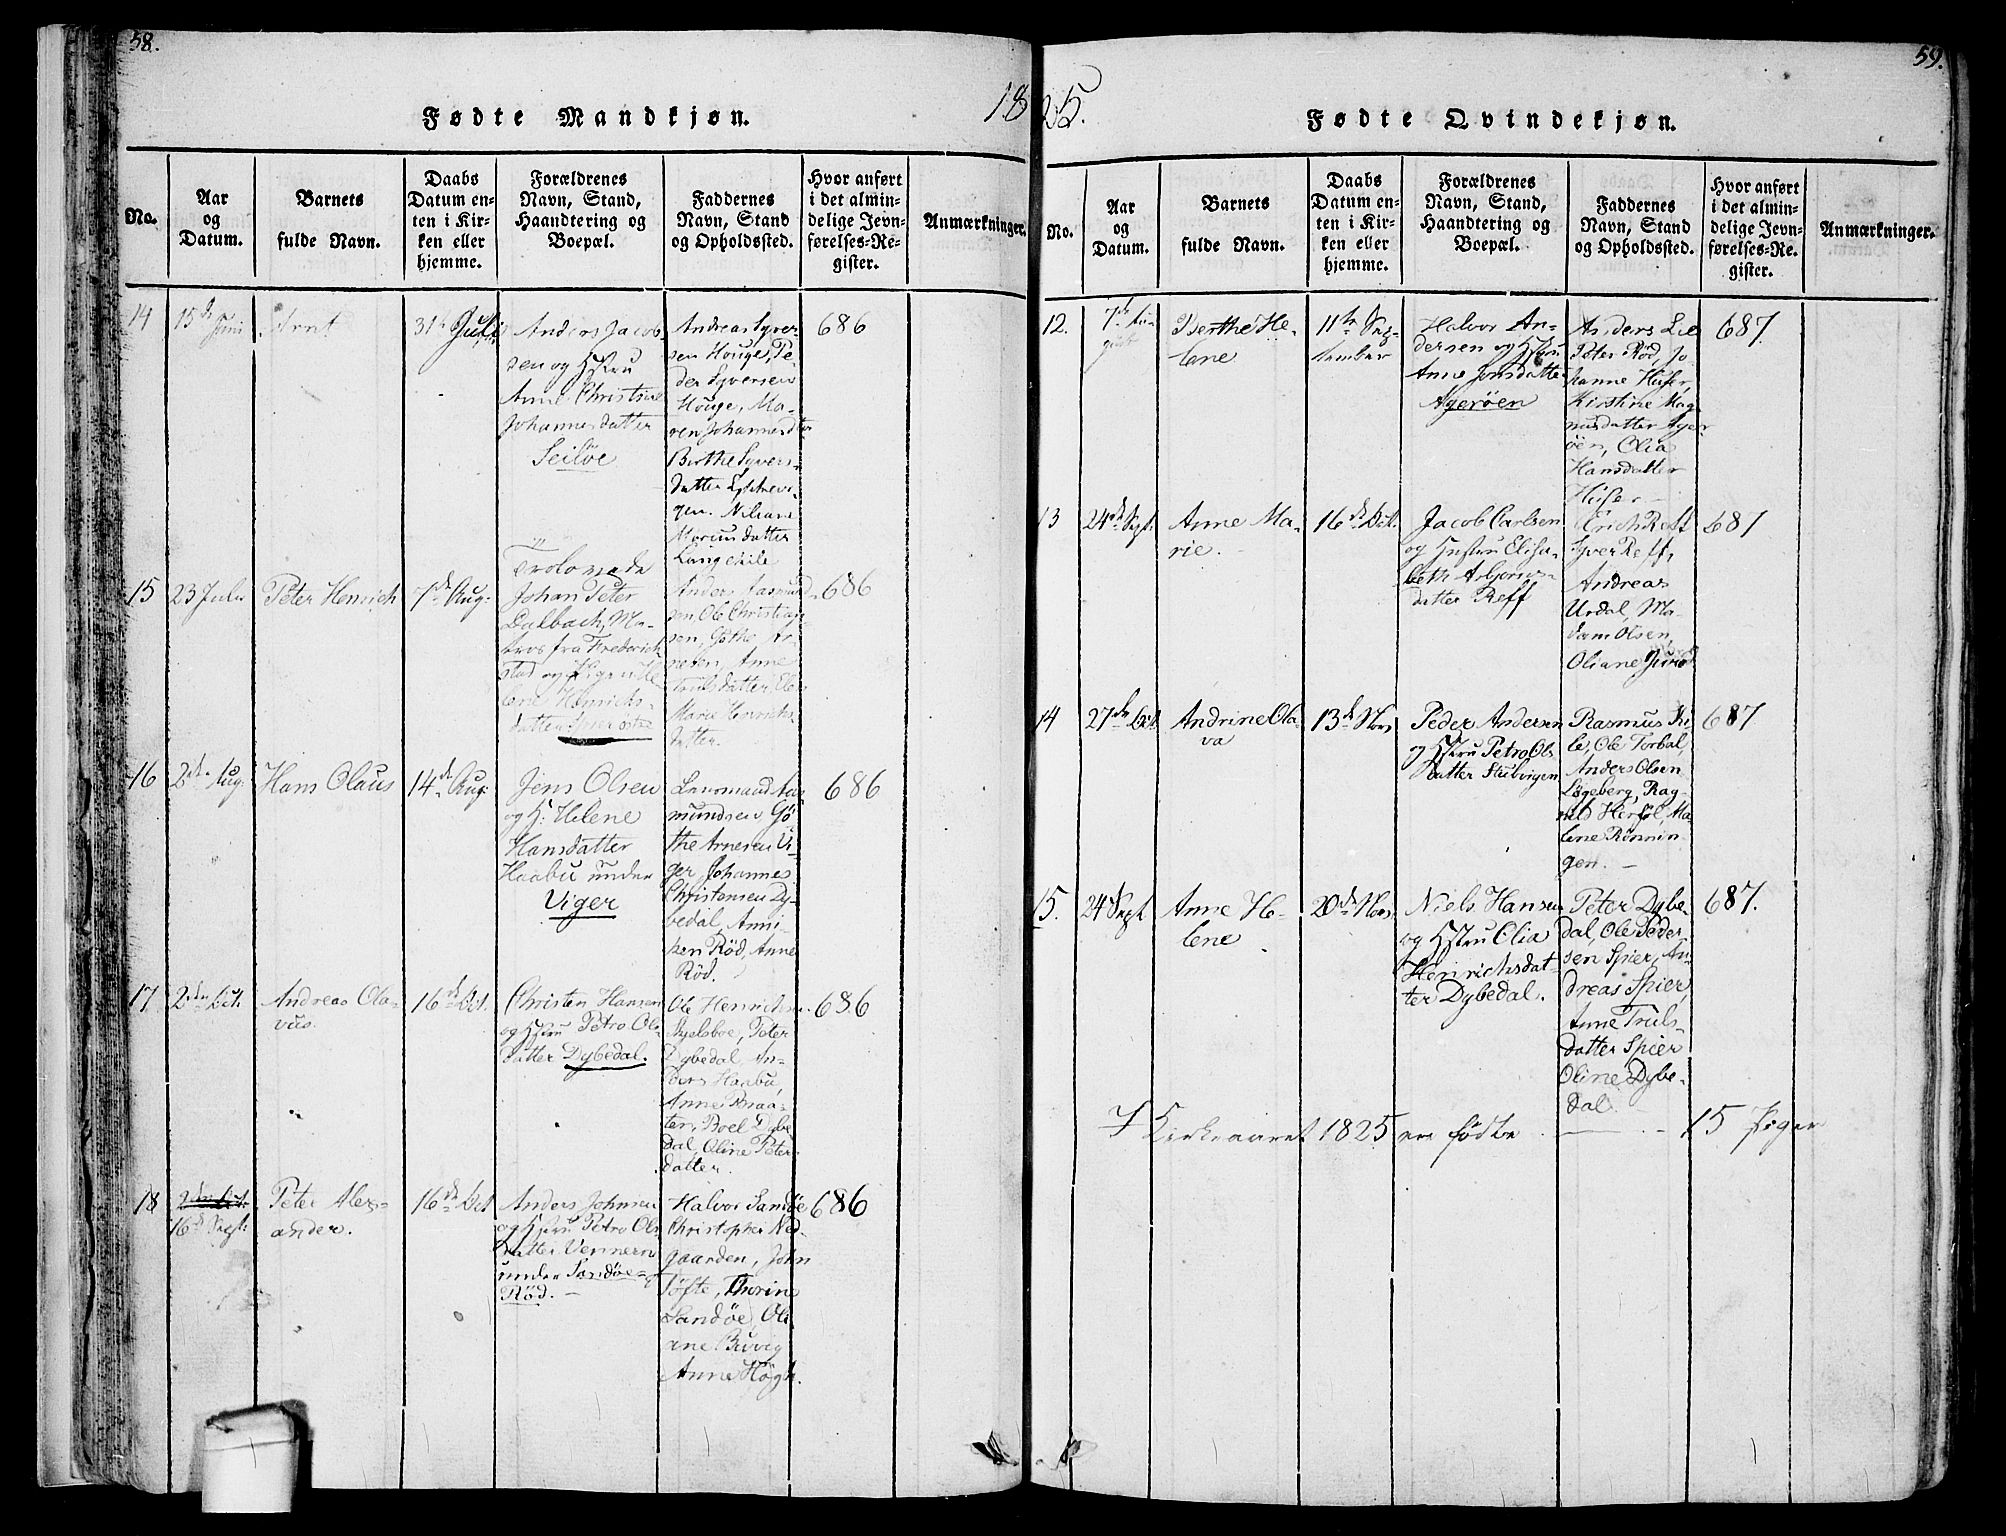 58.
1825.
59.
Fødte Mandkjøn.
No.
Aar
og
Datum.
Barnets
fulde Navn.
Daabs
Datum en-
ten i Kir-
ken eller
hjemme.
Forældrenes
Navn, Stand,
Haandtering og
Boepæl.
Faddernes
Navn, Stand
og Opholdssted.
Hvor anført
i det almin-
delige Jevn-
førelses-Re-
gister.
Anmærkninger.
14
15de Juni
Arnt
31te Juli
Anders Jacob-
sen og Hstru
Anne Christine
Johannesdatter
Seiløe
Andreas Syver-
sen Houge, Pe-
der Syversen
Houge, Ma-
ren Johannesdtr
Berthe Syvers-
datter
datter
Langekile
686
15
23 Julii
Peter Henrich
7de Aug:
Johan Peter
Dalbach, Ma-
tros fra Frederich-
stad og Pigen He-
lene Henrichs-
datter Spier
Anders Aasmund-
sen, Ole Christian-
sen, Gøthe Ar-
nesen, Anne
Trulsdatter,
Marie Henrichs-
datter.
686
16
2den Aug:
Hans Olaus
14de Aug:
Jens Olsen
og H: Helene
Hansdatter
Haabu under
Viger
Aas-
mundsen Gø-
the Arnesen Vi-
ger, Johannes
Christensen Dy-
bedal, Anni-
ken Rød, Anne
Rød.
686
17
2den Oct.
Andreas Ola-
vus.
16de Oct.
Christen Hansen
og Hstru Petro Ols-
datter Dybedal.
Ole Henrichsen
Skjelsboe, Peter
Dybedal, An-
ders Haabu,
Anne Braa-
ten, Boel Dybe-
dal, Oline Peter-
datter.
686
18
2den Oct:
16de Sept:
Peter Alex-
ander.
16de Oct
Anders Johnsen
og Hstru Petro Ols-
datter Vennern
under Sandøe-
Rød.
Halvor Sandøe
Christopher Ned-
gaarden, John
Tøfte, Thorine
Sandøe, Oli-
ane Buvig
Anne Høgh.
686
Fødte Qvindekjøn.
No.
Aar
og
Datum.
Barnets
fulde Navn.
Daabs
Datum en-
ten i Kir-
ken eller
hjemme.
Forældrenes
Navn, Stand,
Haandtering og
Boepæl.
Faddernes
Navn, Stand
og Opholdssted.
Hvor anført
i det almin-
delige Jevn-
førelses-Re-
gister.
Anmærkninger.
12.
7de Au-
gust
Berthe He-
lene
11te Sep-
tember
Halvor An-
dersen og Hstru
Anne Jonsdatter
Agerøen
Anders Lie
Peter Rød, Jo-
hanne Huser,
Kirstine Mag-
nusdatter Ager-
øen, Olia
Hansdatter
Huser
687.
13
24de Sept.
Anne Ma-
rie.
16de Oct.
Jacob Carlsen
og Hustru Elisa-
beth Asbjørns-
datter Reff
Erich Reff
Syver Reff,
Andreas
Urdal, Ma-
dam Olsen,
Oliane
687
14
27de Oct.
Andrine Ola-
va
13de Nov.
Peder Andersen
og Hstru Petro Ols-
datter Stubvigen
Rasmus Ki-
le, Ole Torbal,
Anders Olsen
Løgeberg, Rag-
nild Herføl, Ma-
lene Rønnin-
gen.
687
15.
24de Sept.
Anne He-
lene
20de Nov.
Niels Hansen
og Hstru Olia
Henrichsdat-
ter Dybedal.
Peter Dybe-
dal, Ole Peder-
sen Spier, An-
dreas Spier,
Anne Truls-
datter Spier
Oline Dybe-
dal.
687.
I Kirkeaaret 1825 ere fødte — 15 Piger